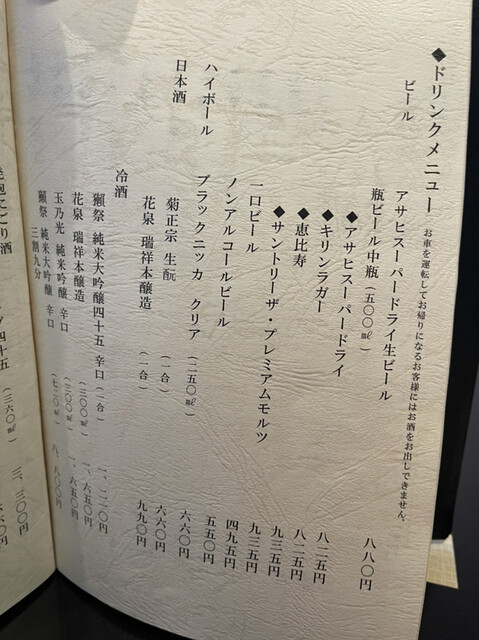 ◆ドリンクメニュー お車を運転してお帰りになるお客様にはお酒をお出しできません。
ビール
アサヒスーパードライ生ビール 八八〇円
瓶ビール中瓶(五〇〇㎖)
◆アサヒスーパードライ 八二五円
◆キリンラガー 八二五円
◆恵比寿 九三五円
◆サントリーザ・プレミアムモルツ 九三五円
一口ビール 四九五円
ノンアルコールビール 五五〇円
ハイボール
ブラックニッカ クリア (二五〇㎖) 六六〇円
日本酒
菊正宗 生酛 (一合) 六六〇円
花泉 瑞祥本醸造 (一合) 九九〇円
冷酒
獺祭 純米大吟醸四十五 辛口 (一合)
花泉 瑞祥本醸造 (三〇〇㎖) 一、六五〇円
玉乃光 純米吟醸 辛口 (三〇〇㎖) 一、六五〇円
獺祭 純米大吟醸 辛口 (七二〇㎖) 八、八〇〇円
三割九分
にごり酒
四十五 (三六〇㎖) 三、三〇〇円